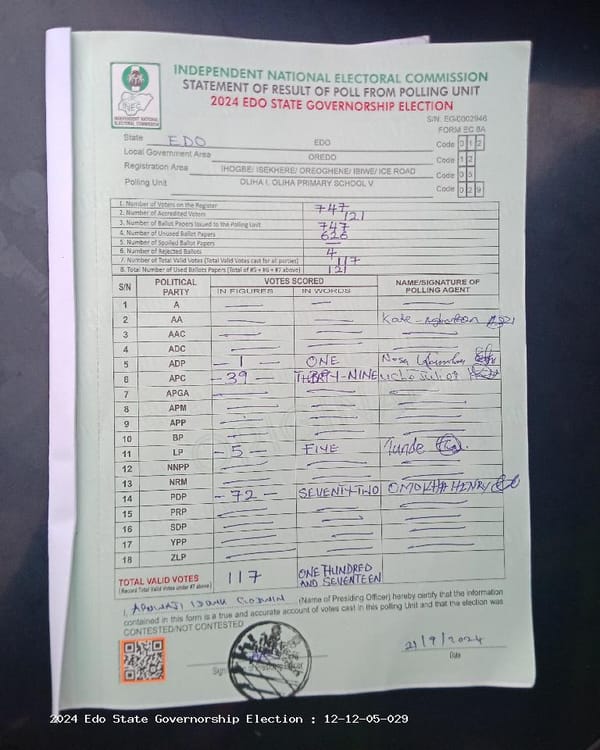 INDEPENDENT NATIONAL ELECTORAL COMMISSION
STATEMENT OF RESULT OF POLL FROM POLLING UNIT
2024 EDO STATE GOVERNORSHIP ELECTION
INEC
INDEPENDENT NATIONAL ELECTORAL COMMISSION
S/N: EG/0002946
FORM EC 8A
State EDO EDO Code 0 1 2
Local Government Area OREDO Code 1 2
Registration Area IHOGBE/ ISEKHERE/ OREOGHENE/ IBIWE/ ICE ROAD Code 0 5
Polling Unit OLIHA I, OLIHA PRIMARY SCHOOL V Code 0 2 9
1. Number of Voters on the Register 747
2. Number of Accredited Voters 121
3. Number of Ballot Papers Issued to the Polling Unit 747
4. Number of Unused Ballot Papers 626
5. Number of Spoiled Ballot Papers —
6. Number of Rejected Ballots 4
7. Number of Total Valid Votes (Total Valid Votes cast for all parties) 117
8. Total Number of Used Ballots Papers (Total of #5 + #6 + #7 above) 121
S/N POLITICAL PARTY VOTES SCORED NAME/SIGNATURE OF POLLING AGENT
IN FIGURES IN WORDS
1 A
2 AA Kate
3 AAC
4 ADC
5 ADP - 1 - ONE
6 APC - 39 - THIRTY-NINE
7 APGA
8 APM
9 APP
10 BP
11 LP - 5 - FIVE Tunde
12 NNPP
13 NRM
14 PDP - 72 - SEVENTY TWO HENRY
15 PRP
16 SDP
17 YPP
18 ZLP
TOTAL VALID VOTES 117 ONE HUNDRED AND SEVENTEEN
(Record Total Valid Votes under #7 above)
I, GODWIN (Name of Presiding Officer) hereby certify that the information
contained in this form is a true and accurate account of votes cast in this polling Unit and that the election was
CONTESTED/NOT CONTESTED
21/9/2024
Date
2024 Edo State Governorship Election : 12-12-05-029